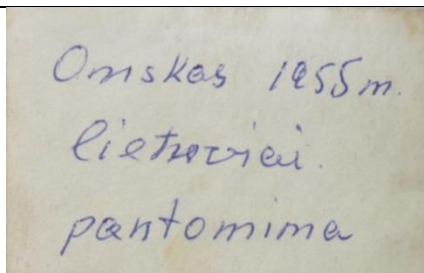 Omskas 1955 m.
lietuviai.
pantomima